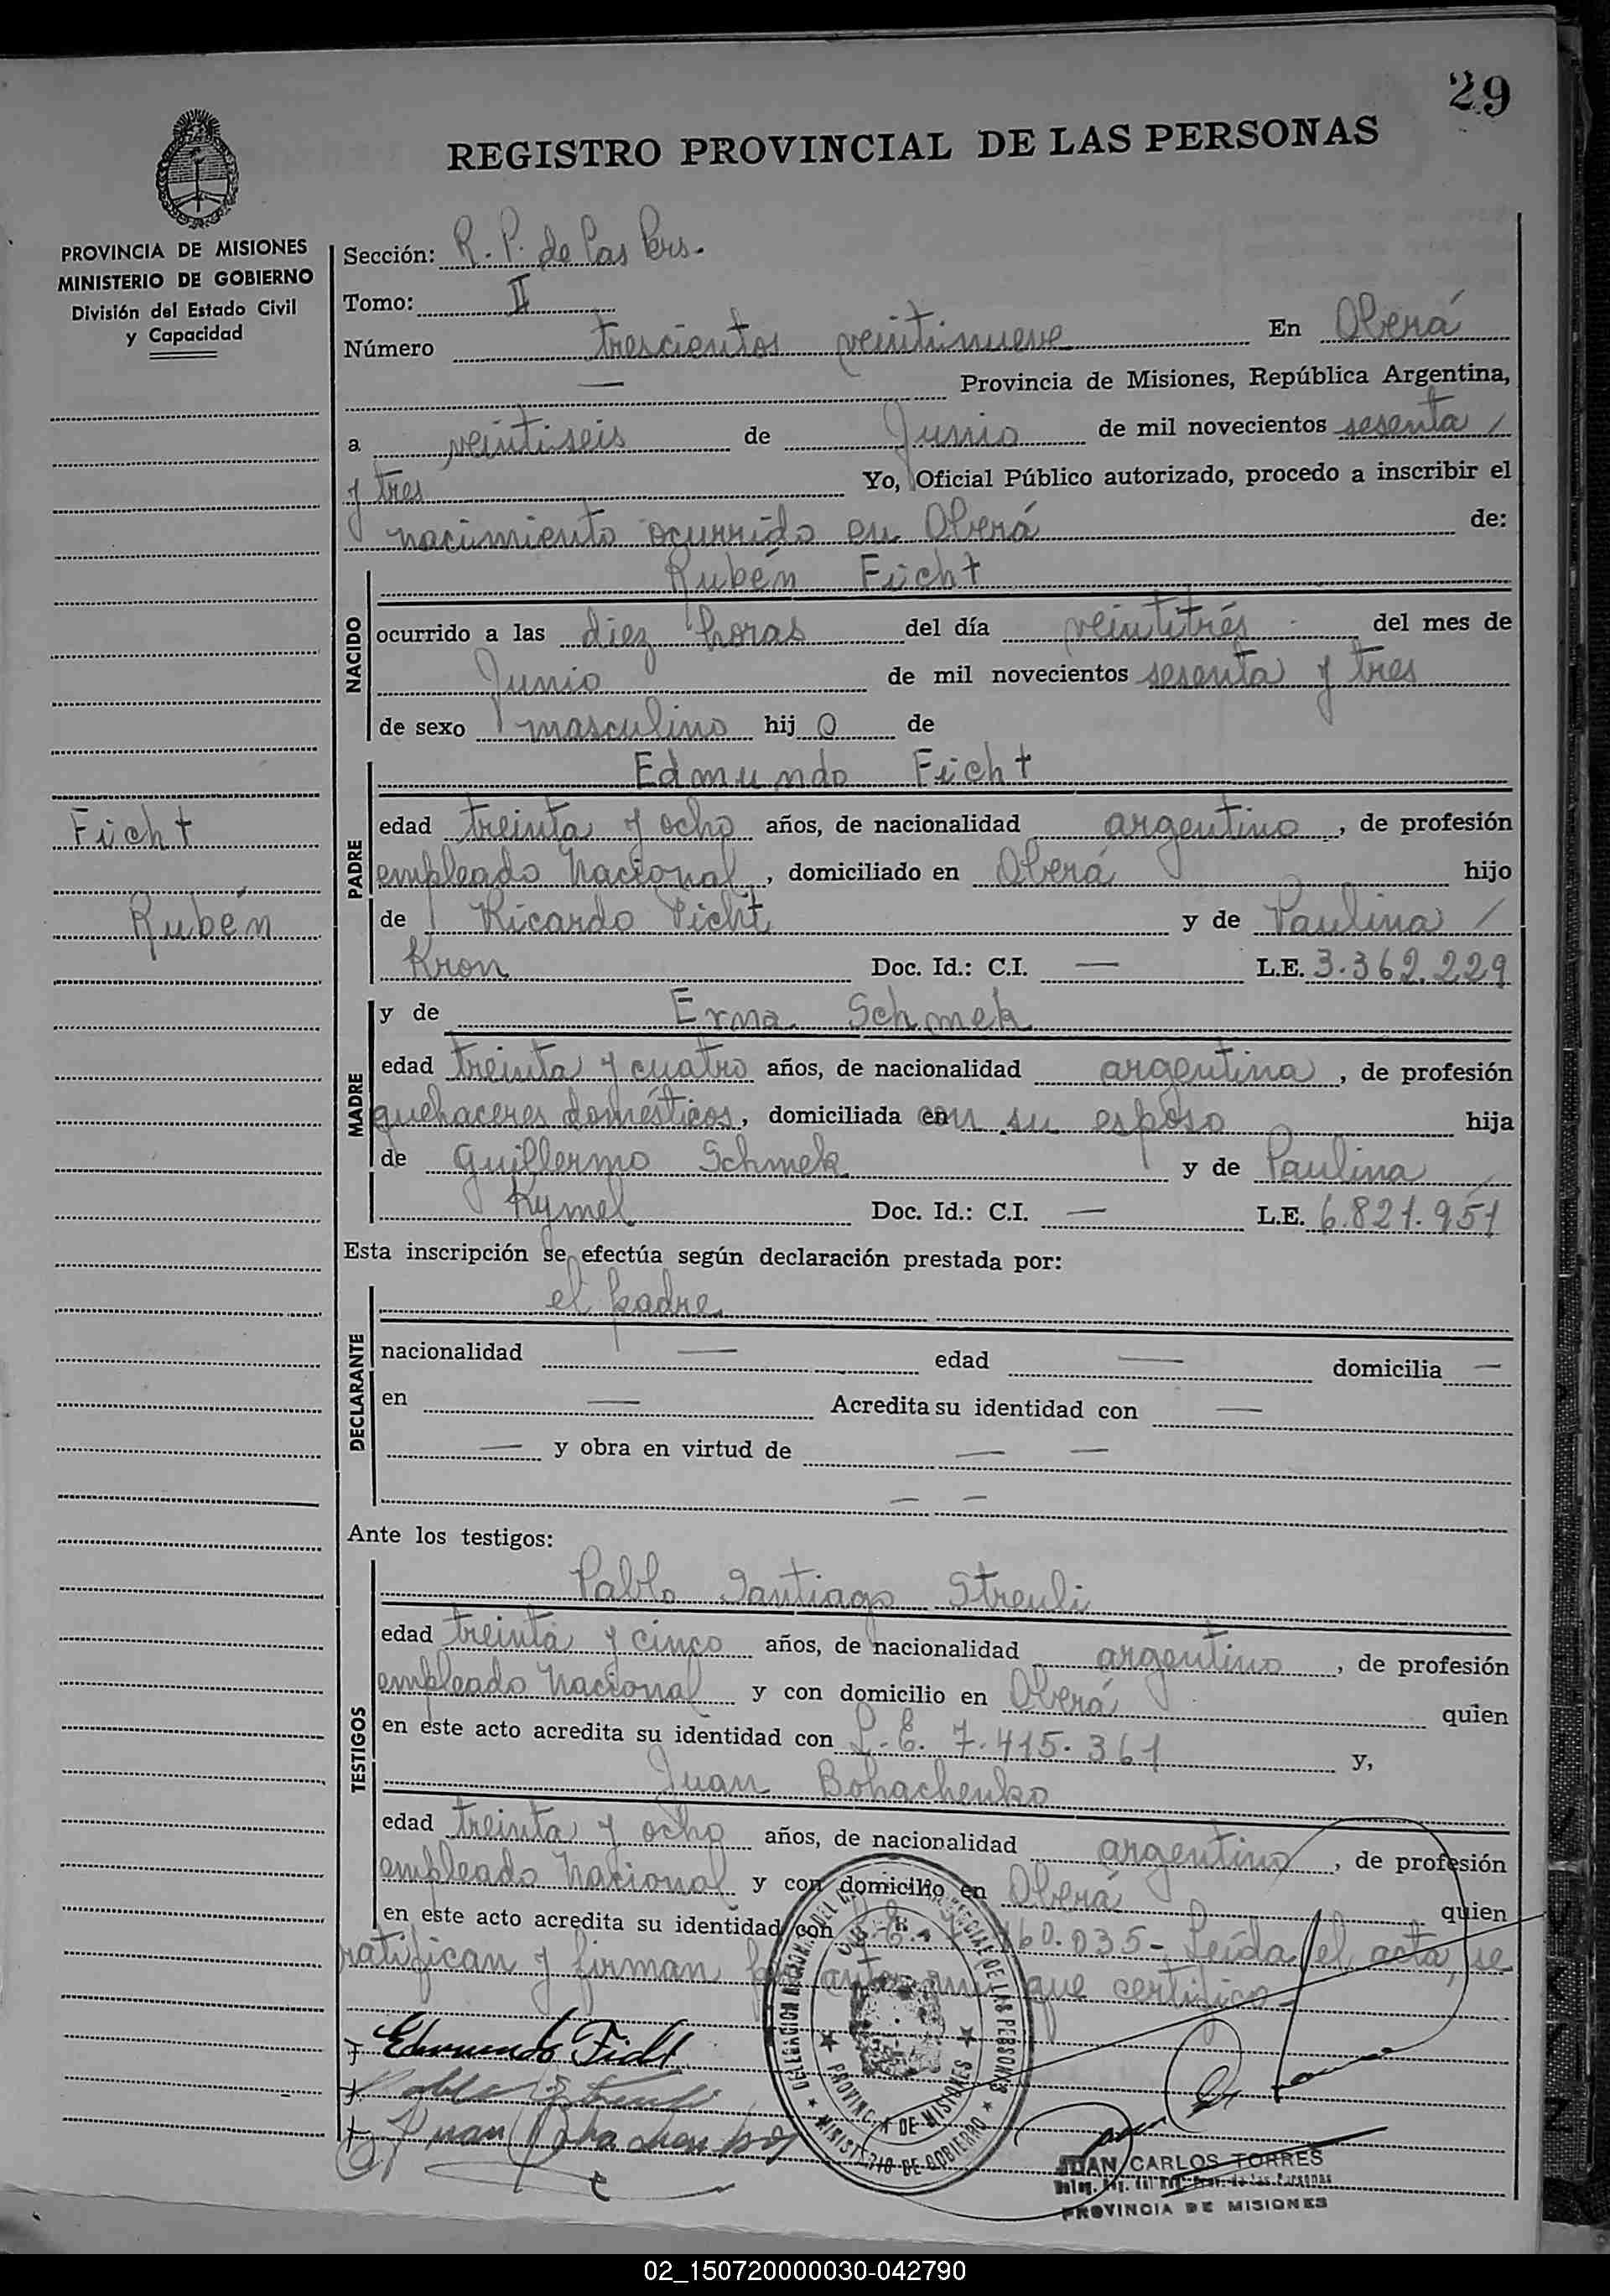 29
REGISTRO PROVINCIAL DE LAS PERSONAS
PROVINCIA DE MISIONES
MINISTERIO DE GOBIERNO
División del Estado Civil
y Capacidad
Sección: R. P. de las Pers.
Tomo: II
Número trescientos veintinueve En Oberá
— Provincia de Misiones, República Argentina,
a veintiseis de Junio de mil novecientos sesenta /
y tres Yo, Oficial Público autorizado, procedo a inscribir el
nacimiento ocurrido en Oberá de:
NACIDO
Rubén Ficht
ocurrido a las diez horas del día veintitrés del mes de
Junio de mil novecientos sesenta y tres
de sexo masculino hijo de
PADRE
Edmundo Ficht
Ficht
edad treinta y ocho años, de nacionalidad argentino, de profesión
empleado Nacional, domiciliado en Oberá hijo
Rubén
de Ricardo Ficht y de Paulina /
Kron Doc. Id.: C.I. — L.E. 3.362.229
MADRE
y de Erna Schmek
edad treinta y cuatro años, de nacionalidad argentina, de profesión
quehaceres domésticos, domiciliada en con su esposo hija
de Guillermo Schmek y de Paulina
Kymel Doc. Id.: C.I. — L.E. 6.821.951
Esta inscripción se efectúa según declaración prestada por:
DECLARANTE
el padre
nacionalidad — edad — domicilia —
en — Acredita su identidad con —
— y obra en virtud de — —
— —
Ante los testigos:
TESTIGOS
Pablo Santiago Streuli
edad treinta y cinco años, de nacionalidad argentino, de profesión
empleado Nacional y con domicilio en Oberá quien
en este acto acredita su identidad con L.E. 7.415.361 y,
Juan Bohachenko
edad treinta y ocho años, de nacionalidad argentino, de profesión
empleado Nacional y con domicilio en Oberá quien
en este acto acredita su identidad con 460.035- Leída el acta, se
ratifican y firman por ante mi que certifico-
Edmundo Ficht
Pablo S Streuli
Juan Bohachenko
PROVINCIA DE MISIONES
MINISTERIO DE GOBIERNO
JUAN CARLOS TORRES
Deleg. Reg. del Reg. Prov. de las Personas
PROVINCIA DE MISIONES
02_150720000030-042790